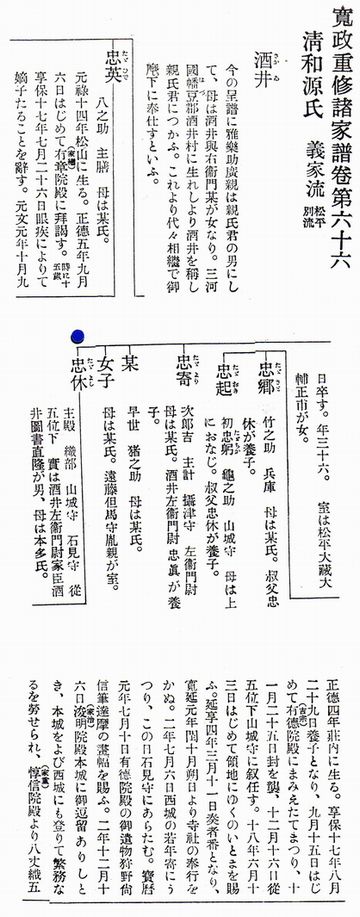 寬政重修諸家譜卷第六十六
清和源氏 義家流 松平別流
酒井
さかゐ
今の呈譜に雅樂助廣親は親氏君の男にし
て、母は酒井與右衞門某が女なり。三河
國幡豆郡酒井村に生れしより酒井を稱し
はづ
親氏君につかふ。これより代々相繼で御
麾下に奉仕すといふ。
忠英
たゞひで
八之助 主膳 母は某氏。
元祿十四年松山に生る。正德五年九月
六日はじめて有章院殿(家繼)に拜謁す。時に十五歲
享保十七年七月二十六日眼疾によりて
嫡子たることを辭す。元文元年十月九
日卒す。年三十六。 室は松平大藏大
輔正甫が女。
忠鄕
たゞさと
竹之助 兵庫 母は某氏。叔父忠
休が養子。
忠起
たゞおき
初忠躬 龜之助 山城守 母は上
におなじ。叔父忠休が養子。
忠寄
たゞより
次郎吉 主計 攝津守 左衞門尉
母は某氏。酒井左衞門尉忠眞が養
子。
某
早世 猪之助 母は某氏。
女子
母は某氏。遠藤但馬守胤親が室。
忠休
たゞよし
主殿 織部 山城守 石見守 從
五位下 實は酒井左衞門尉家臣酒
井圖書直隆が男、母は本多氏。
正德四年莊內に生る。享保十七年八月
二十九日養子となり、九月十五日はじ
めて有德院殿(吉宗)にまみえたてまつり、十
一月二十五日封を襲、十二月十六日從
五位下山城守に叙任す。十八年六月十
三日はじめて領地にゆくのいとまを賜
ふ。延享四年三月十一日奏者番となり、
寬延元年閏十月朔日より寺社の奉行を
かぬ。二年七月六日西城の若年寄にう
つり、この日石見守にあらたむ。寶曆
元年七月十日有德院殿の御遺物狩野尙
信筆達摩の畫幅を賜ふ。二年十二月十
六日浚明院殿(家治)本城に御逗留ありしと
き、本城をよび西城にも登りて繁務な
るを勞せられ、惇信院殿(家重)より八丈織五